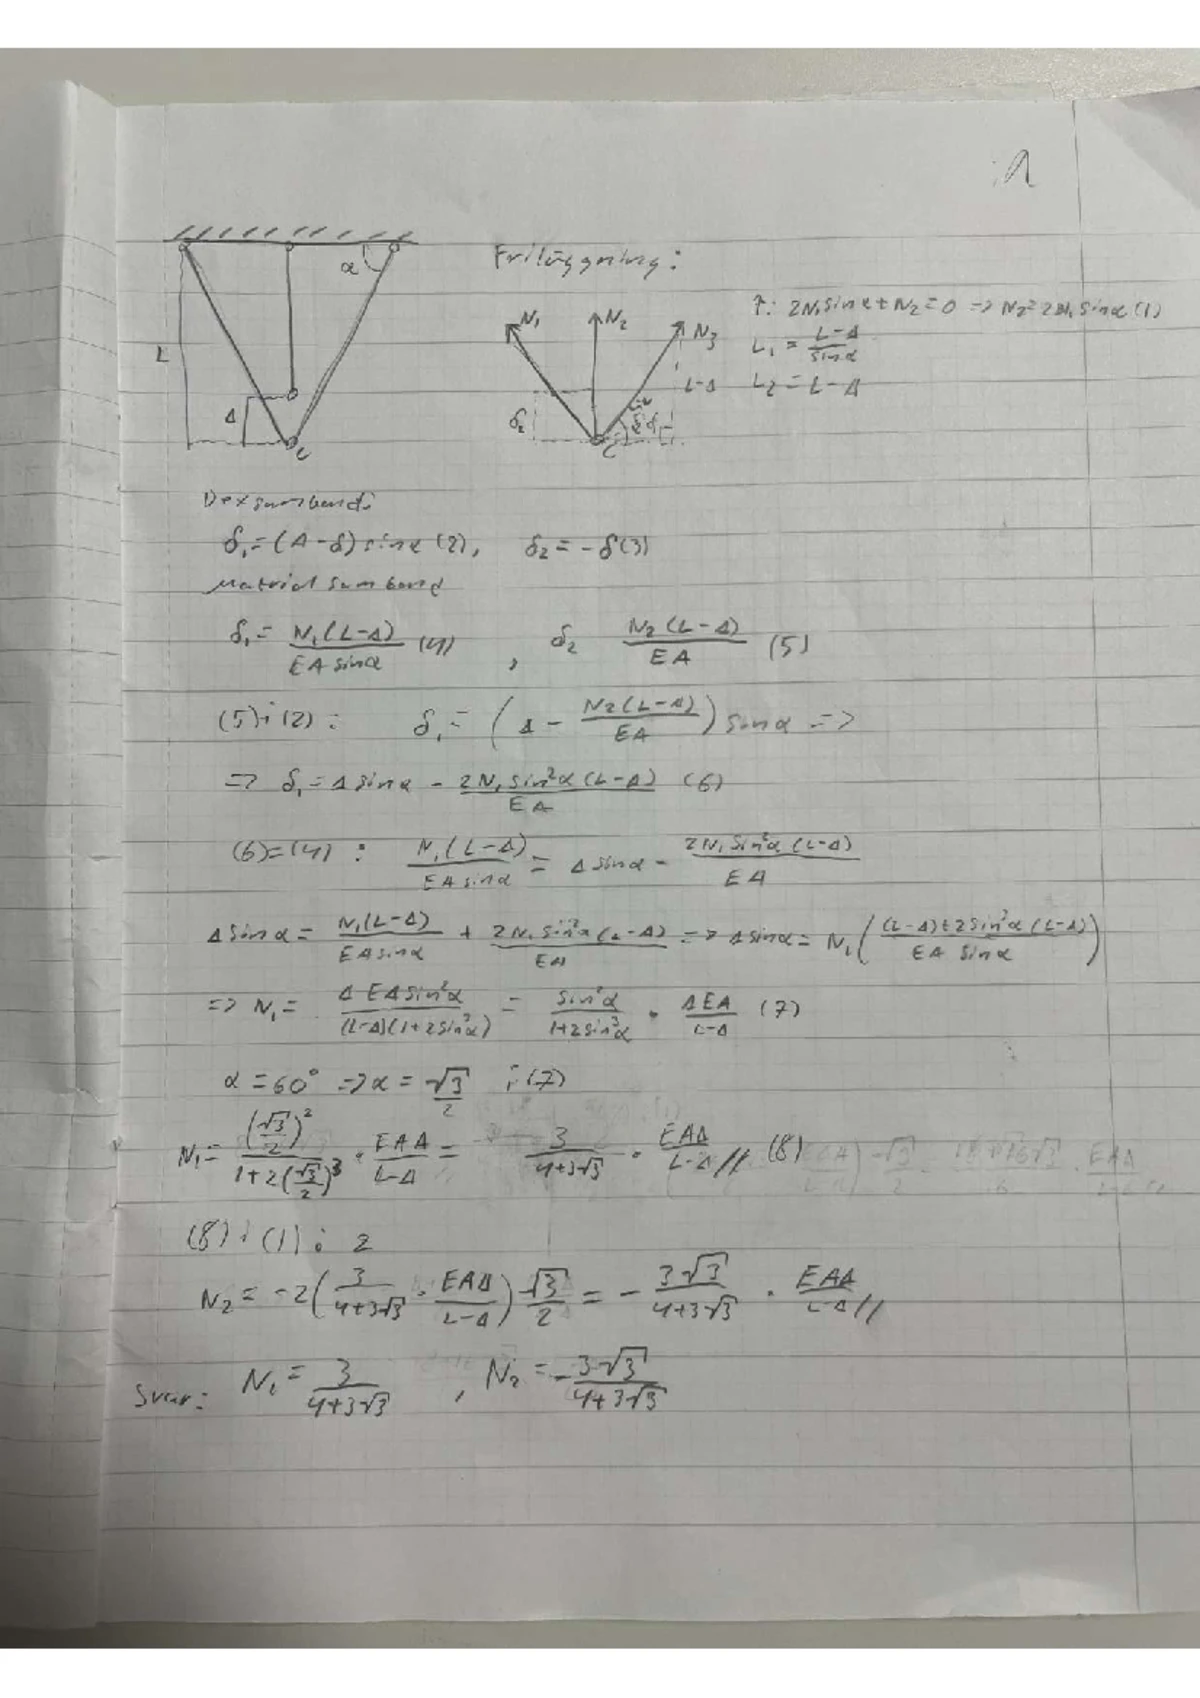 α
L
Δ
C
Friläggning:
N₁ N₂ N₃
↑: 2N₁sinα+N₂=0 => N₂=2N₁sinα (1)
L₁ = (L-Δ)/sinα
L-Δ L₂ = L-Δ
δ₂
C
δ₁=(Δ-δ)sinα (2), δ₂=-δ (3)
Material samband
δ₁= N₁(L-Δ)/(EA sinα) (4), δ₂ N₂(L-Δ)/(EA) (5)
(5) i (2): δ₁= (Δ - N₂(L-Δ)/(EA)) sinα =>
=> δ₁=Δsinα - 2N₁sin²α(L-Δ)/(EA) (6)
(6)=(4): N₁(L-Δ)/(EA sinα) = Δsinα - 2N₁sin²α(L-Δ)/(EA)
Δsinα= N₁(L-Δ)/(EAsinα) + 2N₁sin²α(L-Δ)/(EA) => Δsinα= N₁((L-Δ)+2sin³α(L-Δ)/(EA sinα))
=> N₁= ΔEAsin²α/((L-Δ)(1+2sin³α)) = sin²α/(1+2sin³α) · ΔEA/(L-Δ) (7)
α=60° => α= √3/2 i (7)
N₁= (√3/2)²/(1+2(√3/2)³) · EAΔ/(L-Δ) = 3/(4+3√3) · EAΔ/(L-Δ) // (8)
(8) i (1): 2
N₂= -2(3/(4+3√3) · EAΔ/(L-Δ)) √3/2 = - 3√3/(4+3√3) · EAΔ/(L-Δ) //
Svar: N₁= 3/(4+3√3), N₂=-3√3/(4+3√3)